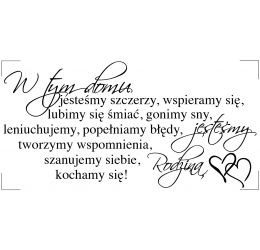 W tym domu
jesteśmy szczerzy, wspieramy się,
lubimy się śmiać, gonimy sny,
leniuchujemy, popełniamy błędy, jesteśmy
tworzymy wspomnienia,
szanujemy siebie, Rodziną
kochamy się!